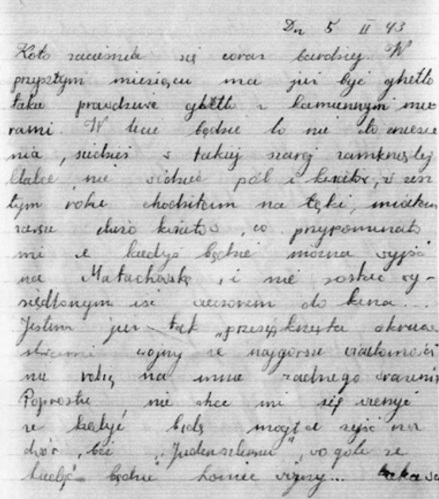 Dn 5 II 43
Koło zacieśnia się coraz bardziej. W
przyszłym miesiącu ma już być ghetto
takie prawdziwe ghetto z kamiennymi mu
rami. W lecie będzie to nie do zniesie
nia, siedzieć w takiej szarej zamkniętej
klatce, nie widzieć pól i kwiatów, w zesz
tym roku chodziłam na łąki, miałam
zawsze dużo kwiatów, co przypominało
mi że kiedyś będzie można wyjść
na Małachowską, i nie zostać wy
siedlonym iść wieczorem do kina...
Jestem już tak „przesiąknięta okruc
nościami wojny że najgorsze wiadomości
nie robią na mnie żadnego wrażenia
Poprostu nie chce mi się wierzyć
że kiedyś będę mogła zejść na
dwór, bez „Judensternu", wogóle że
kiedyś będzie koniec wojny...